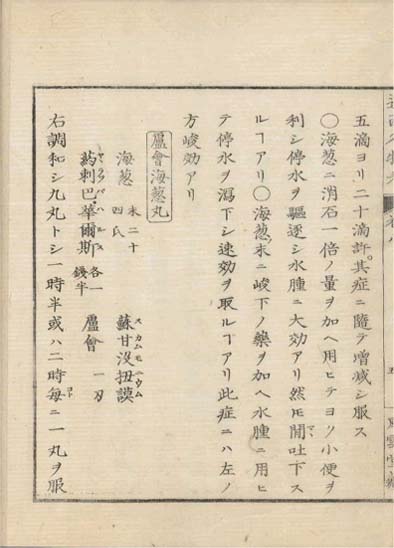 五滴ヨリ二十滴許其症ニ隨テ増减シ服ス
〇海葱ニ消石一倍ノ量ヲ加ヘ用ヒテヨク小便ヲ
利シ停水ヲ驅逐シ水腫ニ大効アリ然𪜈間吐下ス
ルヿアリ〇海葱末ニ峻下ノ藥ヲ加ヘ水腫ニ用ヒ
テ停水ヲ瀉下シ速効ヲ取ルヿアリ此症ニハ左ノ
方峻効アリ
蘆會海葱丸
海葱 末二十四氏 蘇甘没扭謨 スカムモニウム
葯剌巴 華爾斯 各一錢半 蘆會 一刃
右調和シ九丸トシ一時半或ハ二時毎ニ一丸ヲ服